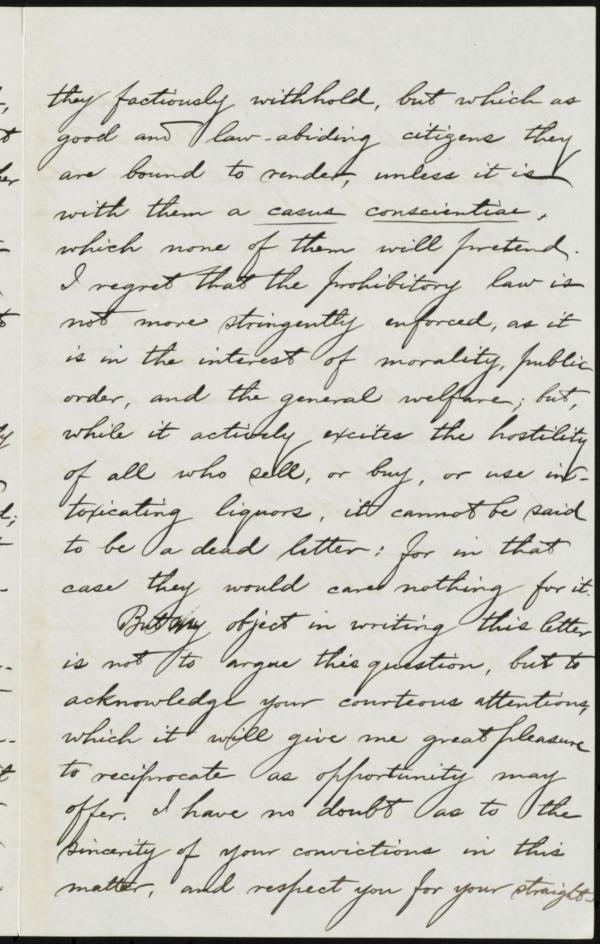 they factiously withhold, but which as
good and law-abiding citizens they
are bound to render, unless it is
with them a casus conscientiae,
which none of them will pretend.
I regret that the prohibitory law is
not more stringently enforced, as it
is in the interest of morality, public
order, and the general welfare; but,
while it actively excites the hostility
of all who sell, or buy, or use in-
toxicating liquors, it cannot be said
to be a dead letter: for in that
case they would care nothing for it.
But my object in writing this letter
is not to argue this question, but to
acknowledge your courteous attentions,
which it will give me great pleasure
to reciprocate as opportunity may
offer. I have no doubt as to the
sincerity of your convictions in this
matter, and respect you for your straight-